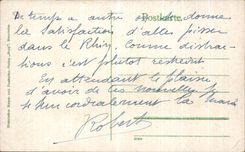 Postkarte.
De temps a autre on se donne
la satisfaction d'aller pisser
dans le Rhin comme distrac-
tions c'est plutot restreint.
En attendant le plaisir
d'avoir de tes nouvelles je
te serre cordialement la main
Robert